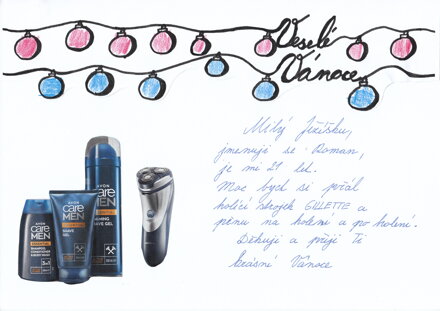 Veselé
Vánoce
Milý Ježíšku,
jmenuji se Roman,
je mi 21 let.
Moc bych si přál
holící strojek GILLETTE a
pěnu na holení a po holení.
Děkuji a přeji Ti
krásné Vánoce
AVON
care
MEN
ESSENTIAL
SHAMPOO,
CONDITIONER
& BODY WASH
3in1
AVON
care
MEN
ESSENTIAL
SHAVE
GEL
AVON
care
MEN
ESSENTIAL
FOAMING
SHAVE GEL